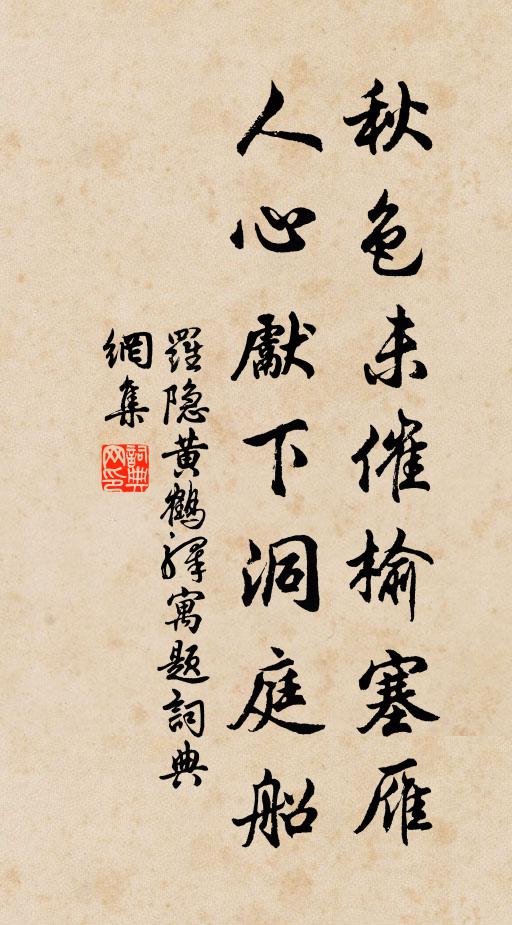 秋色未催榆塞雁
人心獻下洞庭船
羅隐黄鶴驛寓題詞典
網集
詞典
网印